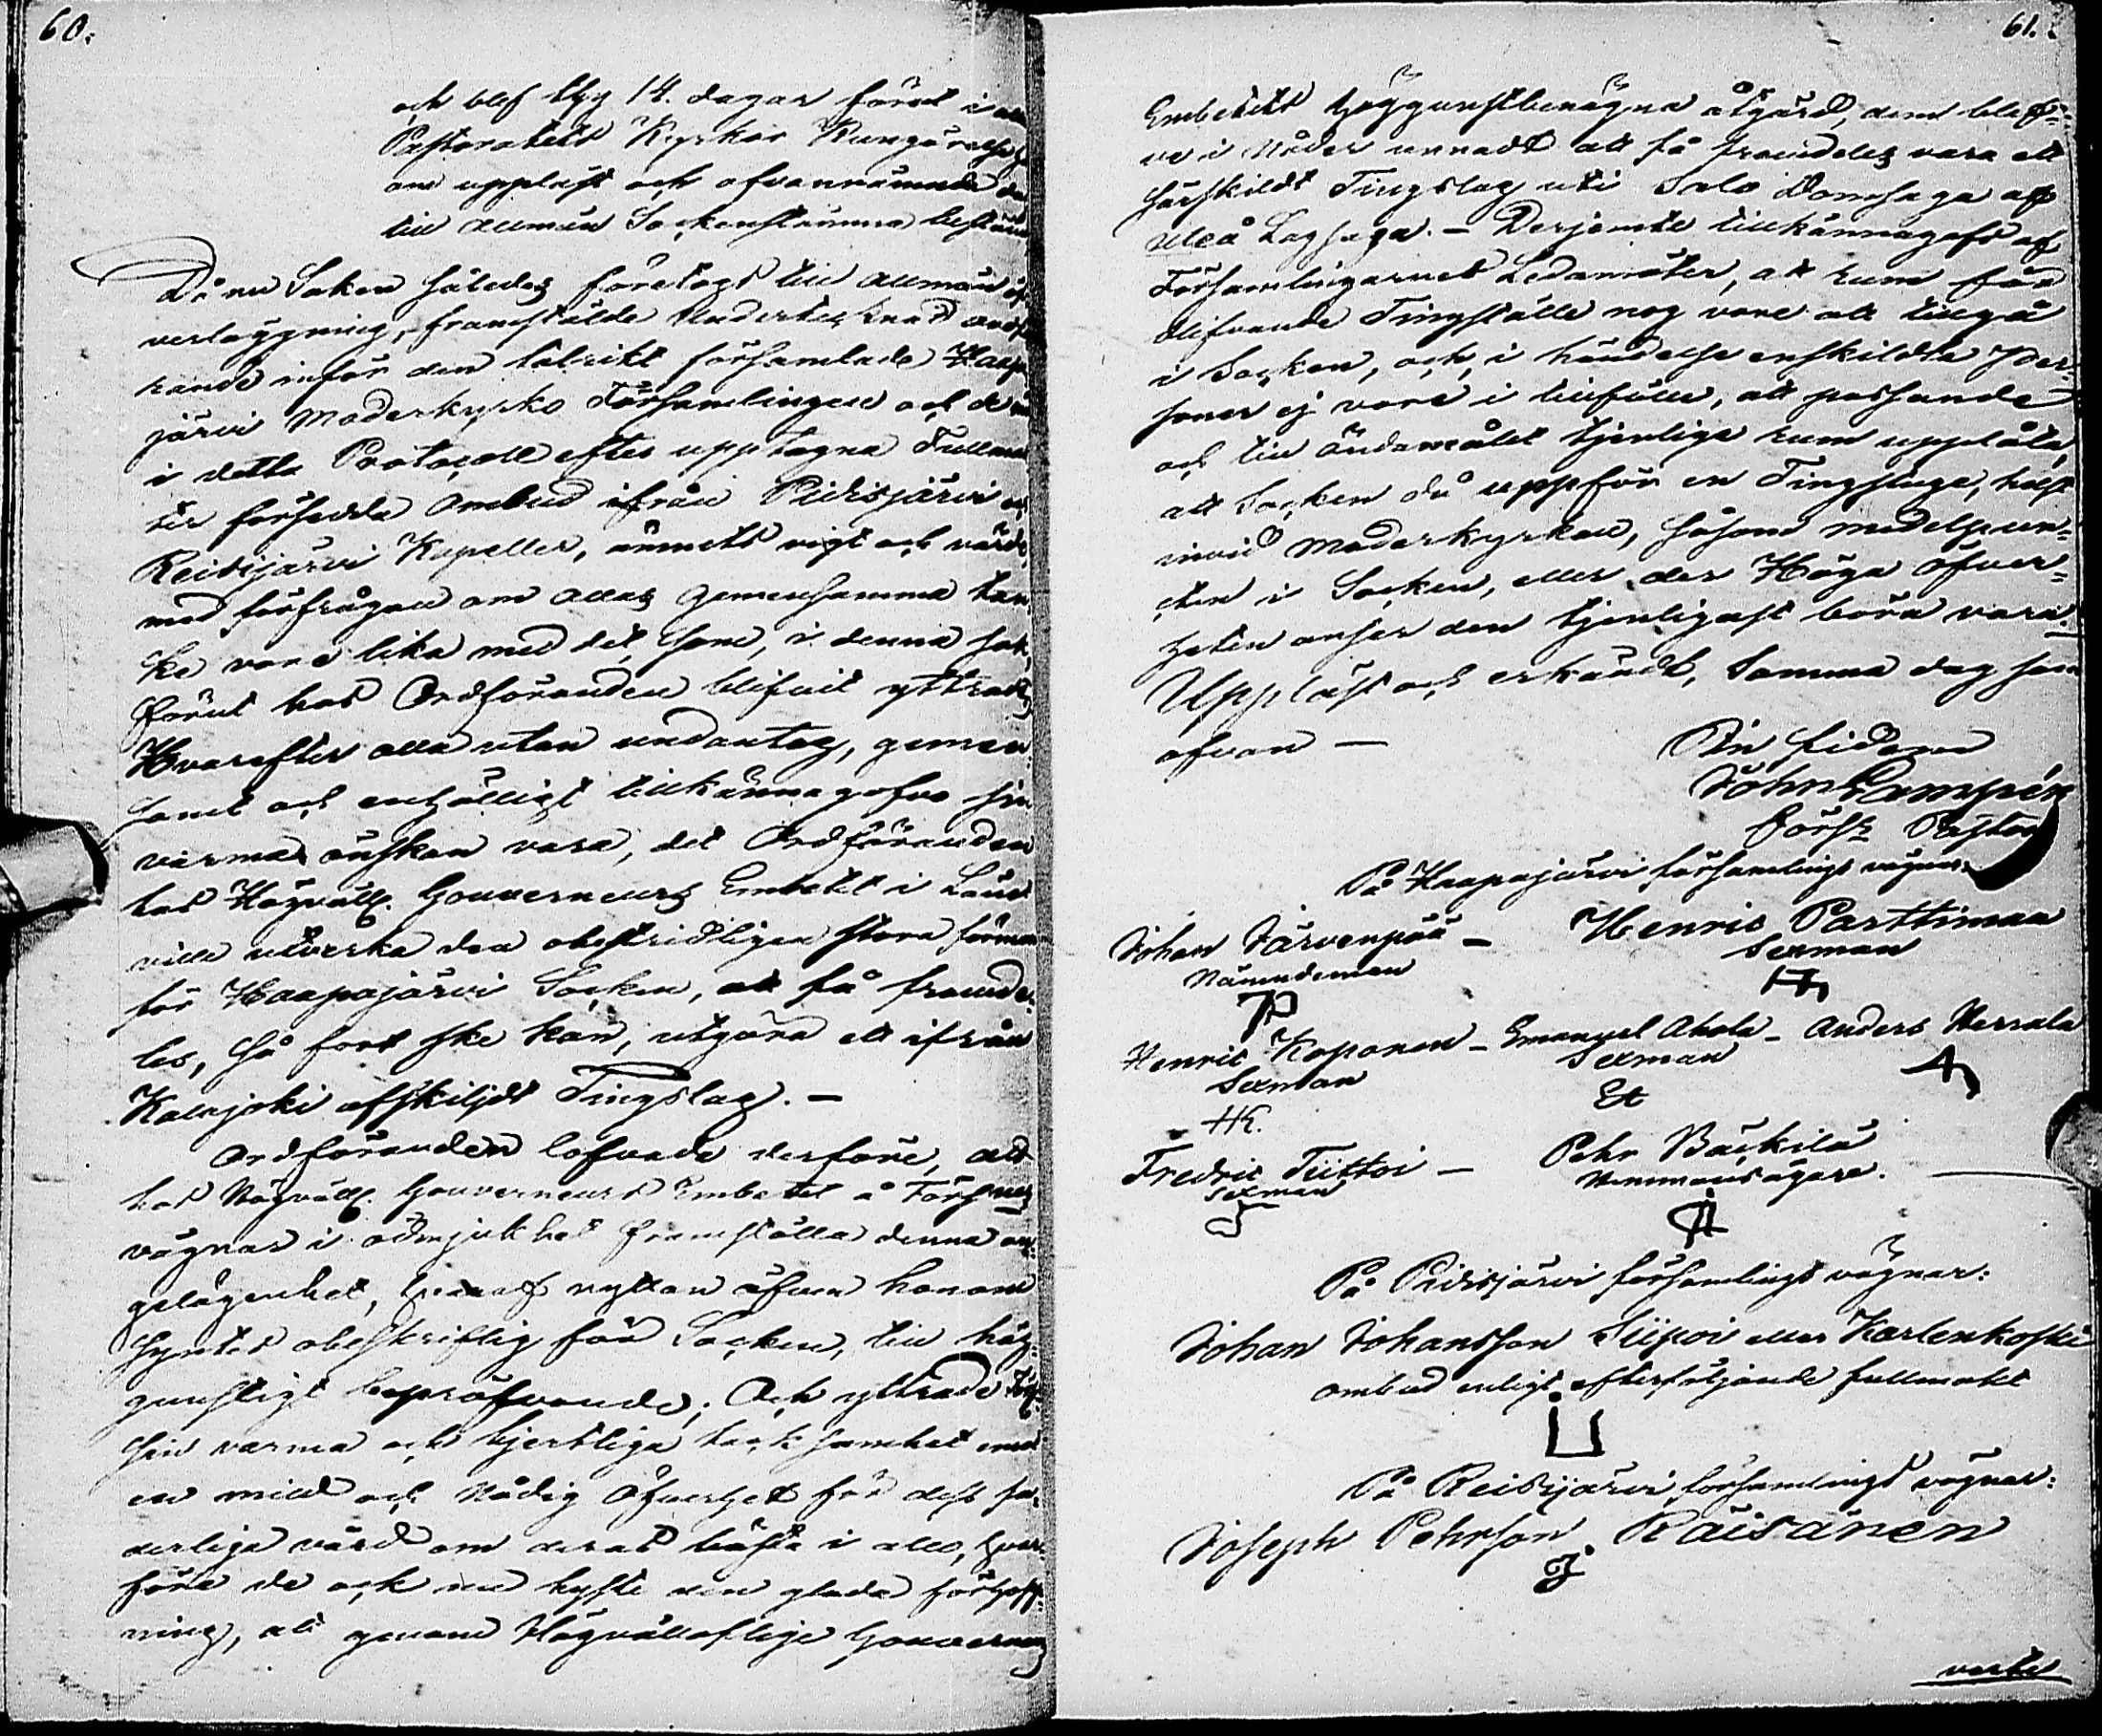 60.
och blef tvg 14. dagar förut i alla
Pastoratets Kyrkor Kungörelse
om uppläst och ofvannämnde dag
till allmän Sockenstämma bestämd
Då nu Saken således företogs till allmän öf-
verläggning, framstälde Undertecknad ordfö-
rande inför den talrikt församlade Haapa-
järvi Moderkyrko Församlingen och de
i detta Protocoll efter upptagna Fullmak-
ter försedda ombud ifrån Pidisjärvi och
Reisijärvi Kapeller, ämnets vigt och värde,
med förfrågan om allas gemensamma tan-
ke vore lika med det, som, i denna sak,
förut hos Ordföranden blifvit yttradt,
Hvarefter alla utan undantag, gemen-
samt och enhälligt tillkännagofvo sin
varma önskan vara, det Ordföranden
hos Högvälb. Gouverneurs Embetet i Länet
ville utverka den obestridligen stora förmån
för Haapajärvi Socken, att få framde-
les, så fort ske kan, utgöra ett ifrån
Kalajoki afskiljdt Tingslag. —
Ordföranden lofvade derföre, att
hos Högvälb. Gouverneurs Embetet å Förs:nes
vägnar i ödmjukhet framställa denna an-
gelägenhet, hvaraf nyttan äfven honom
syntes obeskriflig för Socken, till hög-
gunstigt bepröfvande; Och yttrade Förs:
sin varma och hjertliga tacksamhet emot
en mild och Nådig Öfverhet för dess fa-
derliga vård om deras bästa i allo, hvar-
före de ock nu hyste den glada förhopp-
ning, att genom Högvälloflige Gouverneurs
61.
Embetets höggunstbenägna åtgärd, dem blef-
ve i Nåder unnadt att få framdeles vara ett
särskildt Tingslag uti Salo Domsaga af
Uleå Lagsaga. — Derjemte tillkännagafs af
Församlingarnes Ledamöter, att rum för
blifvande Tingställe nog vore att tillgå
i Socken, och, i händelse enskildte Per-
soner ej vore i tillfälle, att passande
och till ändamålet tjenliga rum upplåta,
att Socken då uppför en Tingstuga, helst
invid Moderkyrkan, såsom medelpunc-
ten i Socken, eller der Höga Öfver-
heten anser den tjenligast böra vara.
Uppläst och erkändt, Samma dag som
ofvan —
In fidem
Johan Lampén
Förs: Pastor
På Haapajärvi församlings vägnar:
Johan Järvenpää — Henric Parttiman
Nämndeman Sexman
Henric Koponen — Emanuel Ahola — Anders Verrala
Sexman Sexman
HK. EA
Fredric Tiittoi — Pehr Bäckilä
Sexman Hemmansägare.
På Pidisjärvi församlings vägnar:
Johan Johansson Siipoi eller Karlenkoski
ombud enligt efterföljande fullmakt
På Reisijärvi församlings vägnar:
Joseph Pehrson Räisänen
verte